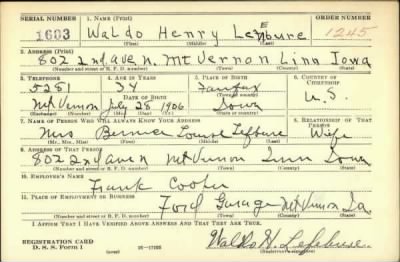 SERIAL NUMBER 1. NAME (Print) ORDER NUMBER
1603 Waldo Henry Lefebure 1245
(First) (Middle) (Last)
2. ADDRESS (Print)
802 2nd ave N. Mt Vernon Linn Iowa
(Number and street or R. F. D. number) (Town) (County) (State)
3. TELEPHONE 4. AGE IN YEARS 5. PLACE OF BIRTH 6. COUNTRY OF CITIZENSHIP
5281 34 Fairfax U.S.
DATE OF BIRTH (Town or county)
Mt Vernon July 28 1906 Iowa
(Exchange) (Number) (Mo.) (Day) (Yr.) (State or country)
7. NAME OF PERSON WHO WILL ALWAYS KNOW YOUR ADDRESS 8. RELATIONSHIP OF THAT PERSON
Mrs Bernice Louise Lefebure Wife
(Mr., Mrs., Miss) (First) (Middle) (Last)
9. ADDRESS OF THAT PERSON
802 2nd ave N Mt Vernon Linn Iowa
(Number and street or R. F. D. number) (Town) (County) (State)
10. EMPLOYER'S NAME
Frank Cooper
11. PLACE OF EMPLOYMENT OR BUSINESS
Ford Garage Mt Vernon Ia
(Number and street or R. F. D. number) (Town) (County) (State)
I AFFIRM THAT I HAVE VERIFIED ABOVE ANSWERS AND THAT THEY ARE TRUE.
REGISTRATION CARD
D. S. S. Form 1 (over) Waldo H. Lefebure
(Registrant's signature)